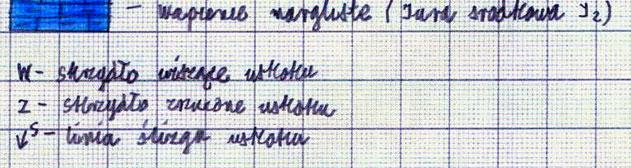 - wapienie margliste (Jura środkowa J2)
W - skrzydło wiszące uskoku
Z - skrzydło zrzucone uskoku
↙s - linia ślizgu uskoku